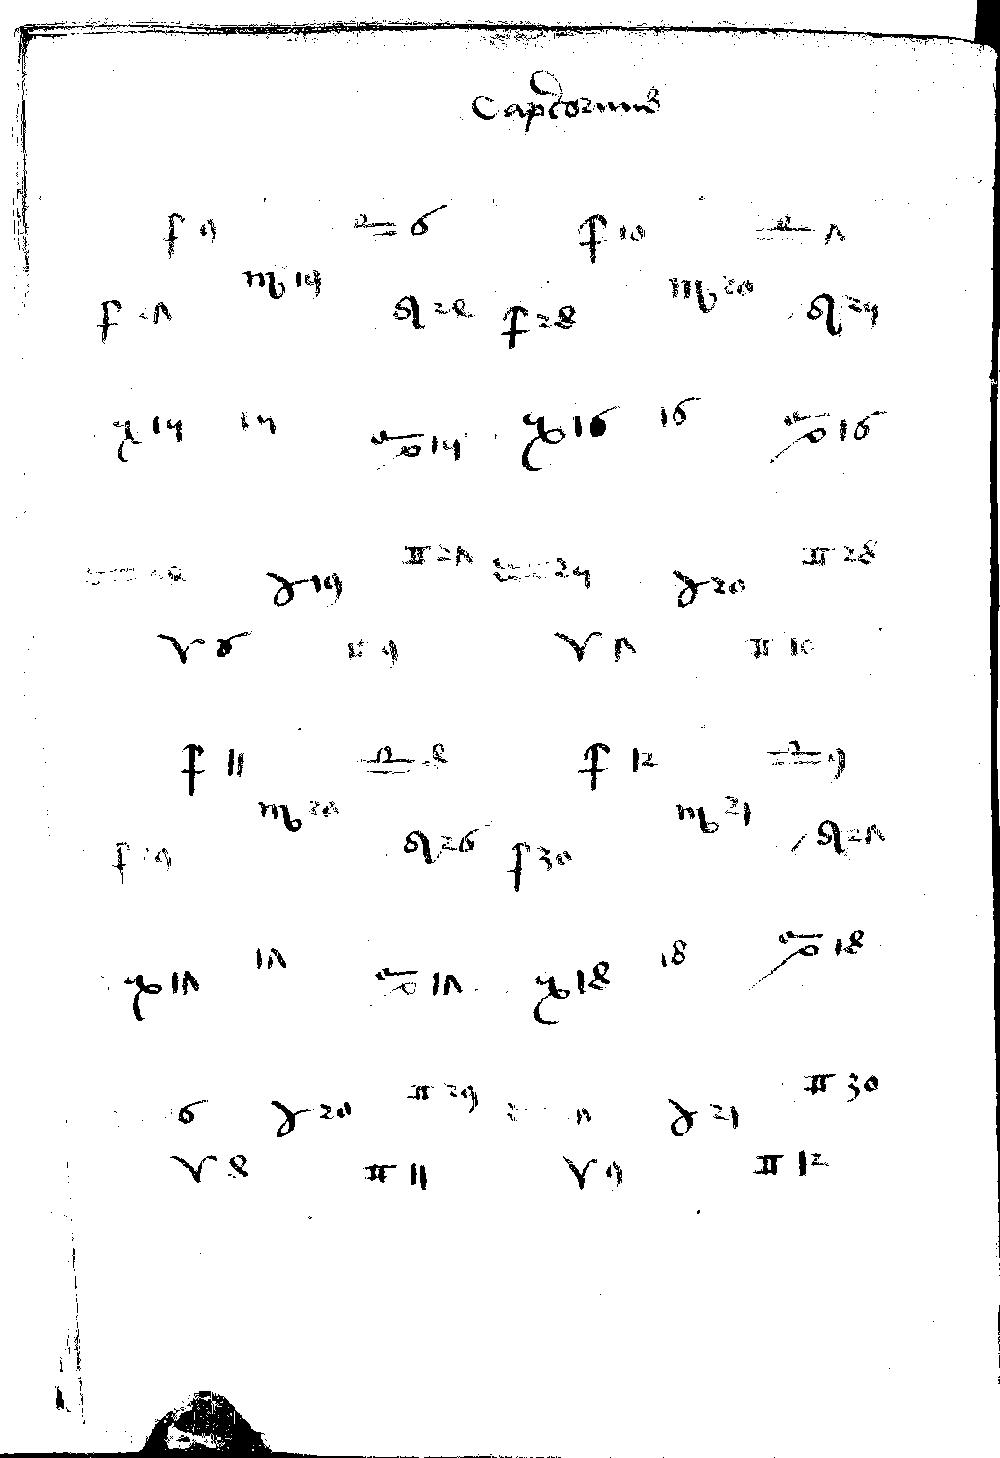 Capricornus
♐ 9 ♎ 6 ♐ 10 ♎ 7
♏ 19 ♏ 20
♐ 27 ♌ 28 ♌ 24
♑ 14 14 ♋ 14 ♑ 16 16 ♋ 16
♊ 27 ♊ 28
♉ 19 ♒ 24 ♉ 20
♈ 6 ♊ 9 ♈ 7 ♊ 10
♐ 11 ♎ 8 ♐ 12 ♎ 9
♏ 20 ♏ 21
♐ 29 ♌ 26 ♐ 30 ♌ 27
17 18 ♋ 18
♑ 17 ♋ 17 ♑ 18
♊ 29 ♊ 30
6 ♉ 20 7 ♉ 21
♈ 8 ♊ 11 ♈ 9 ♊ 12